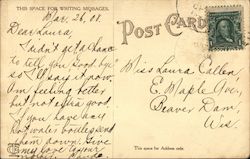 THIS SPACE FOR WRITING MESSAGES.
POST CARD
Mar. 26, 08.
Dear Laura,
Didn't get a chance
to tell you Good bye
so I say it now.
Am feeling better
but not extra good.
If you have any
hot water bottles send
them down. Give
my love to
Miss Laura Cullen
E. Maple Ave,
Beaver Dam
Wis.
This space for Address only.